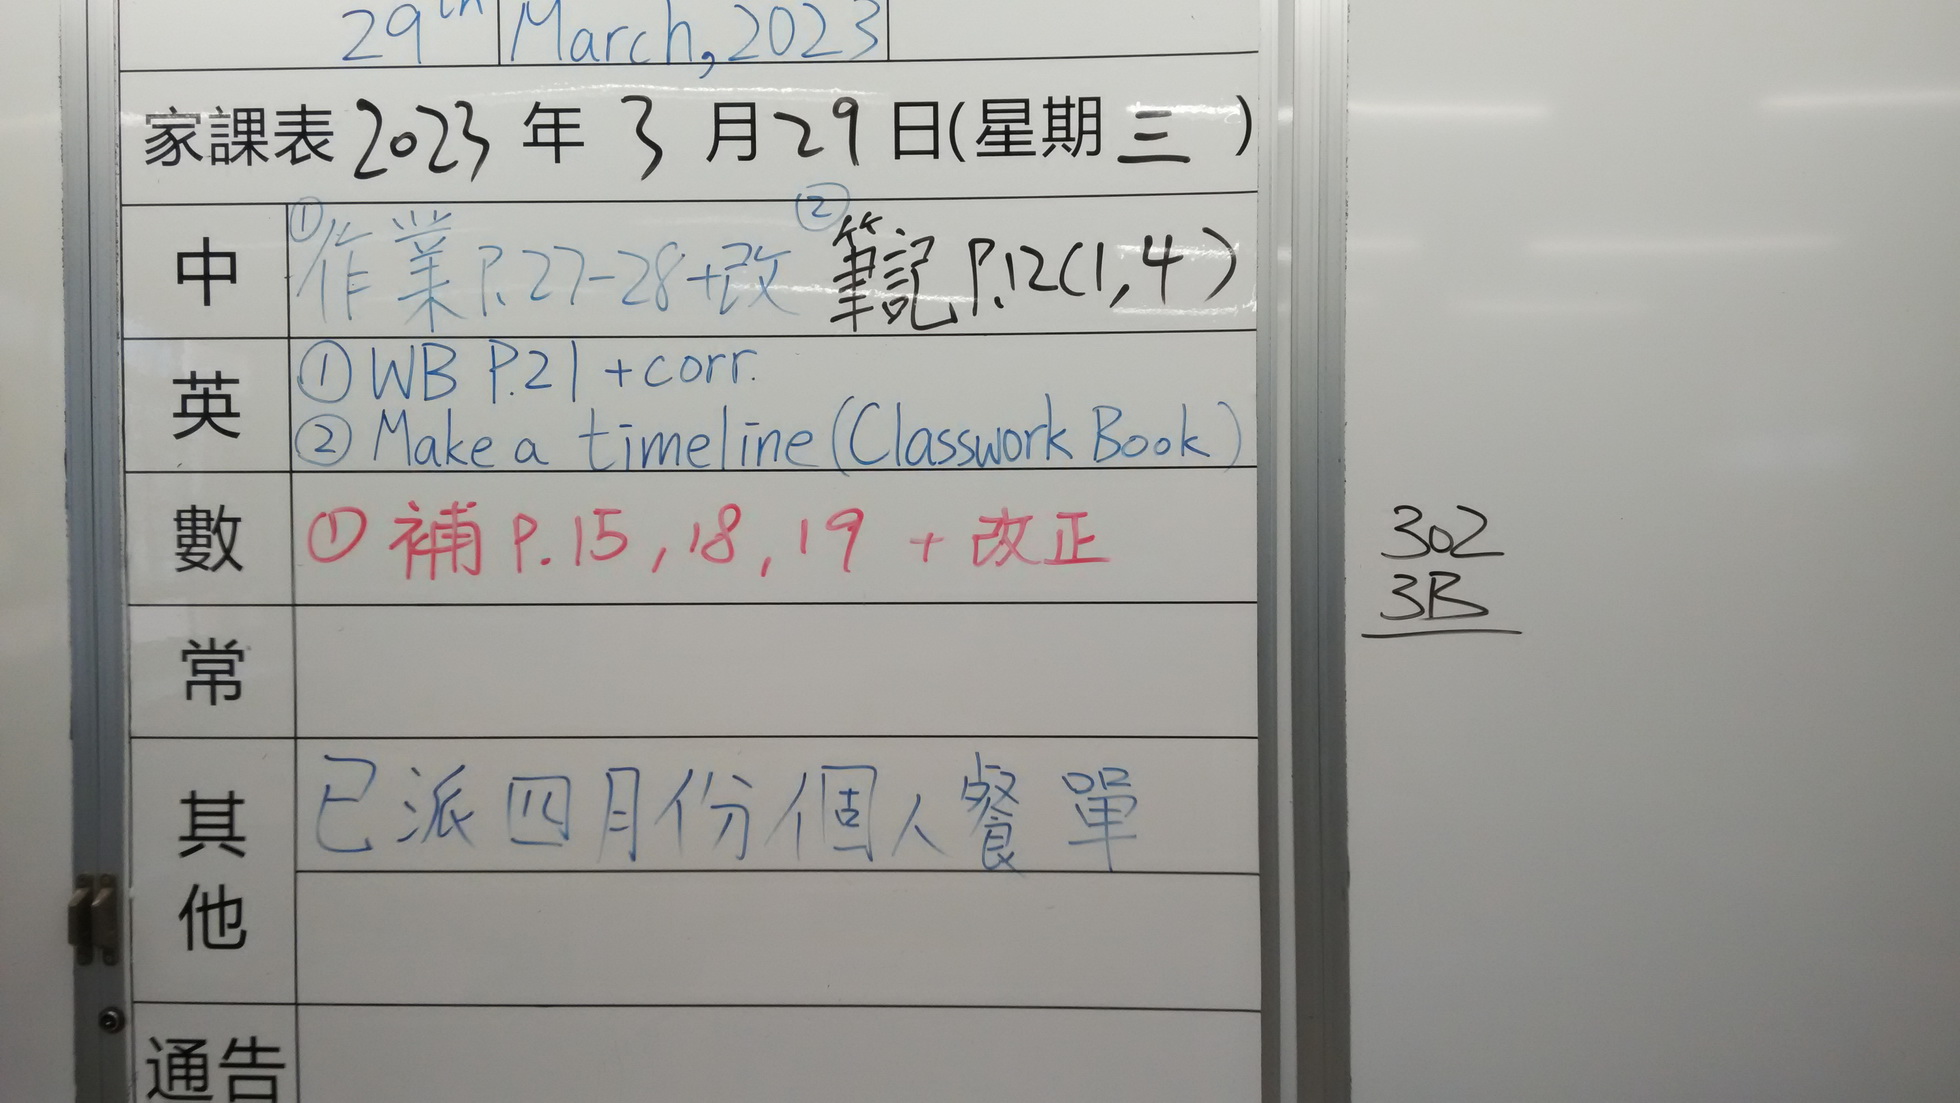 29th March, 2023
家課表 2023 年 3 月 29 日(星期 三 )
中 ①作業P.27-28+改 ②筆記 P.12(1,4)
英 ① WB P.21 + corr.
② Make a timeline (Classwork Book)
數 ① 補 P.15, 18, 19 + 改正
302
3B
常
其他 已派四月份個人餐單
通告